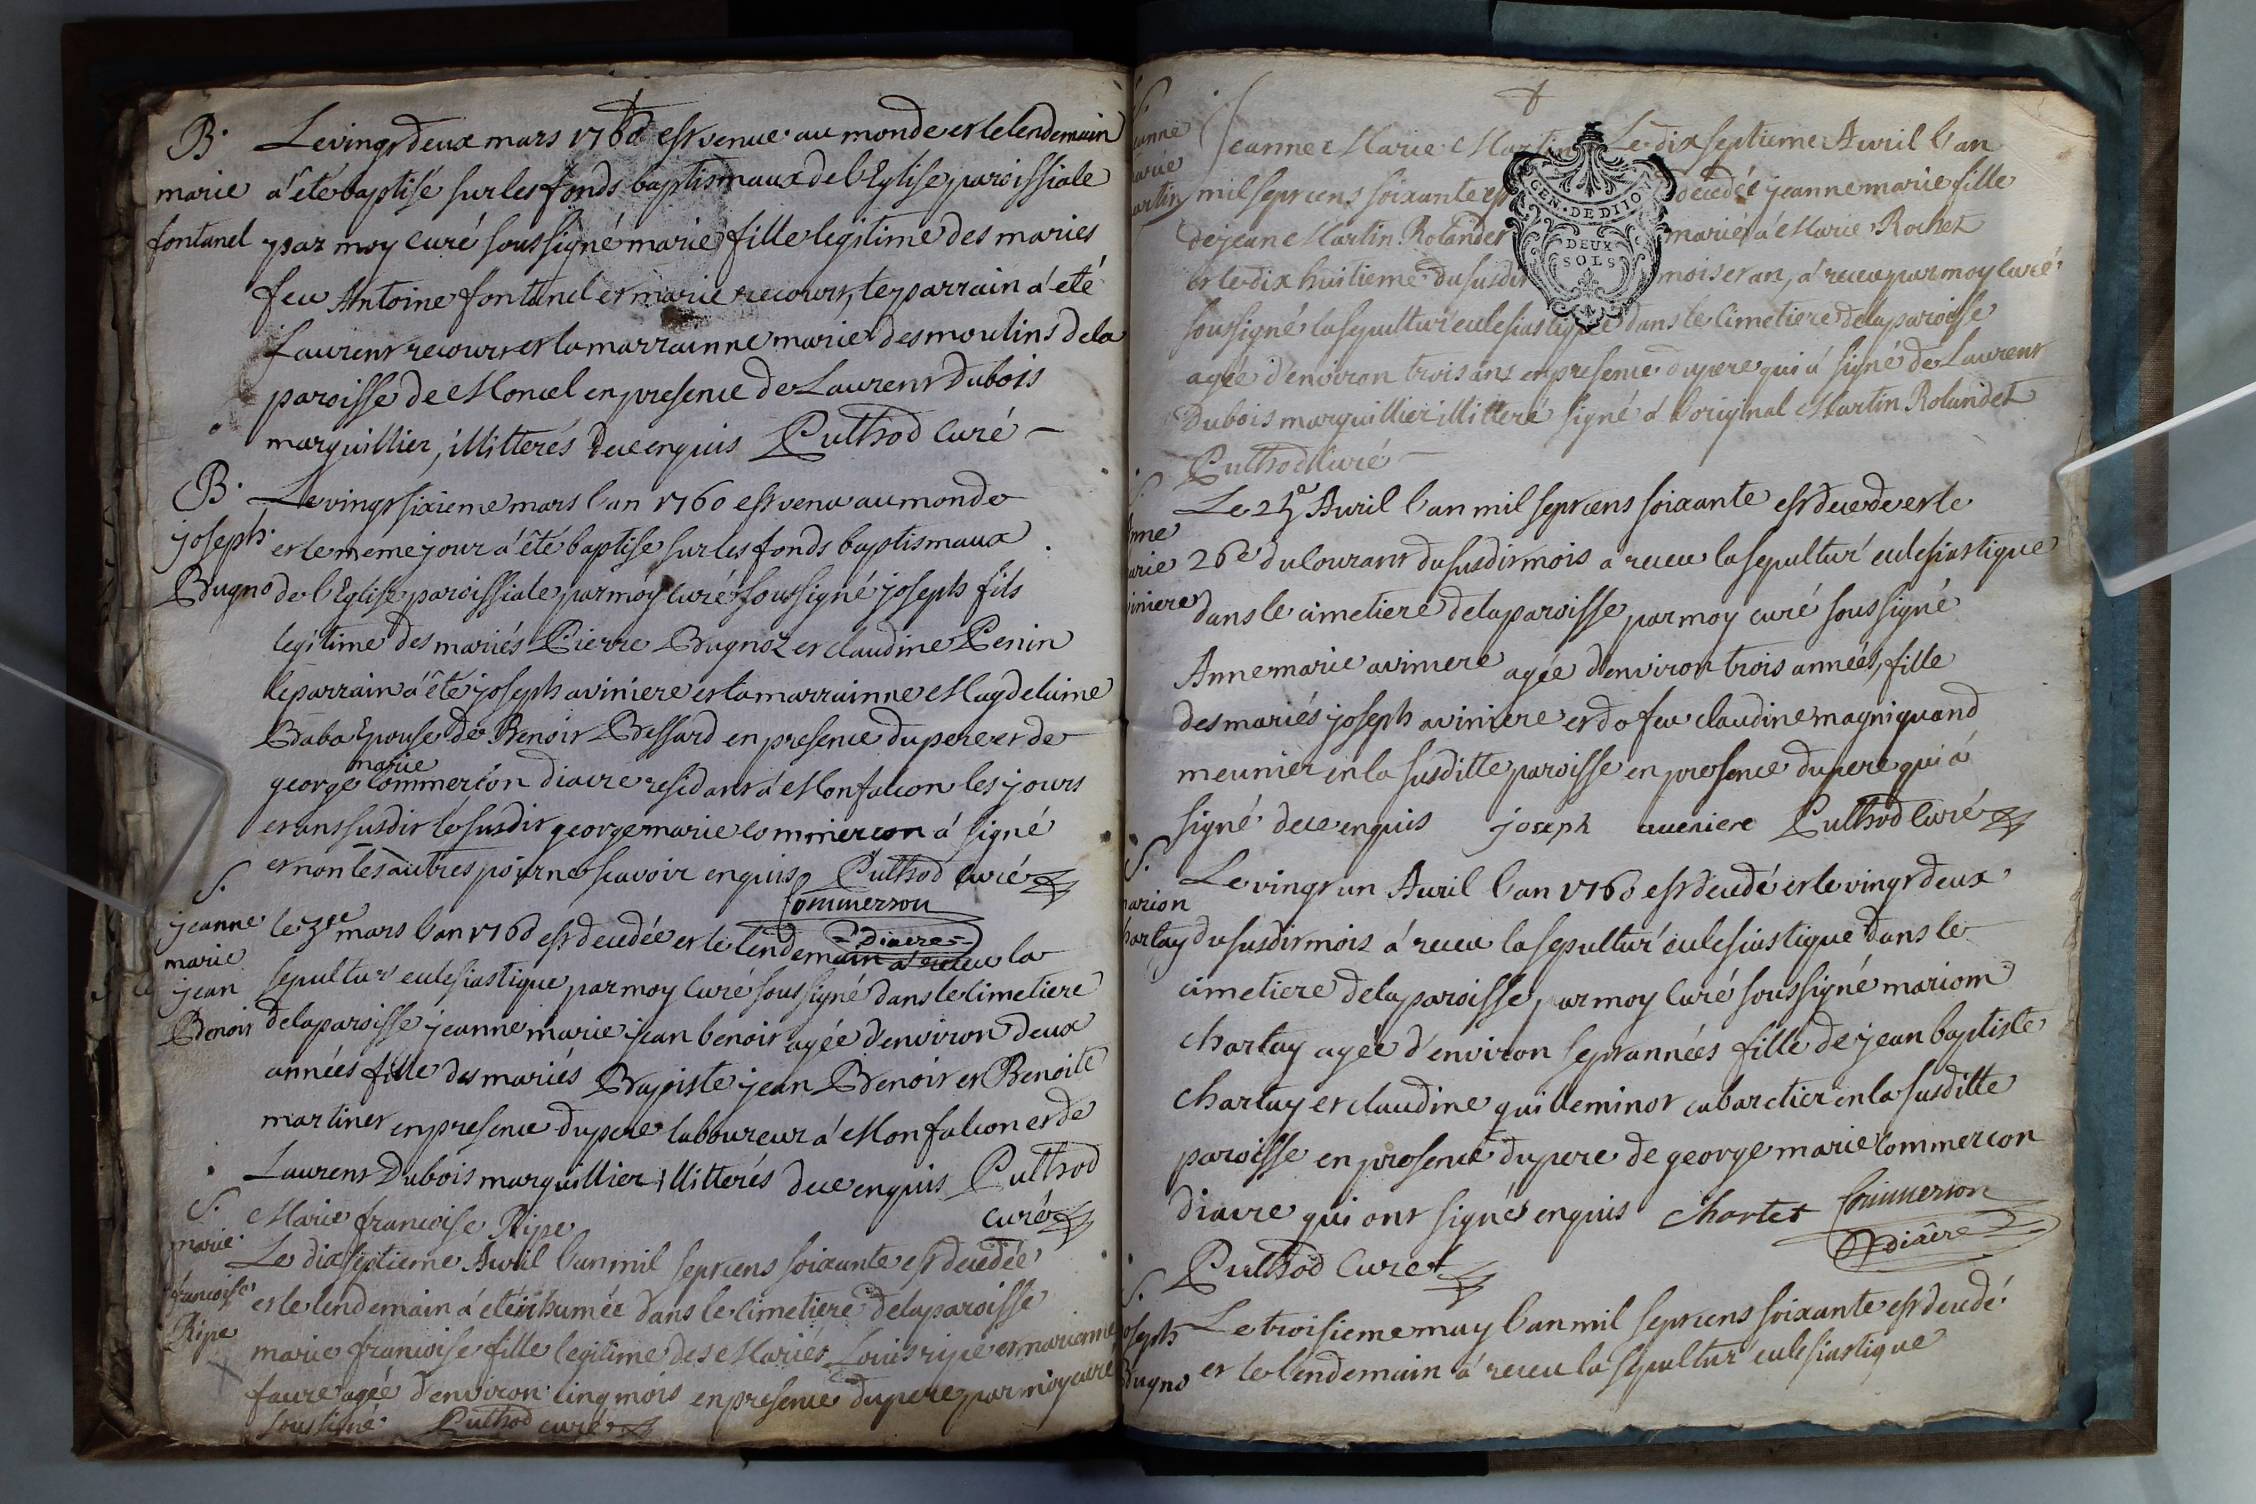 B. Le vingt deux mars 1760 est venue au monde et le lendemain
marie a été baptisé sur les fonds baptismaux de l'Eglise paroissiale
fontanel par moy curé soussigné marie fille legitime des maries
feu Antoine fontanel et marie recourt, le parrain á été
Laurent recourt et la marrainne marie desmoulins de la
paroisse de Moncel en presence de Laurent Dubois
marguillier, illitterés de ce enquis Puthod Curé
B. Le vingt sixieme mars l'an 1760 est venu au monde
joseph et le méme jour a été baptise sur les fonds baptismaux
Bugno de l'Eglise paroissiale par moy curé soussigné joseph fils
legitime des mariés Pierre Bugnoz et claudine Penin
le parrain a été joseph aviniere et la marrainne Magdelaine
Baba Epouse de Benoit Bessard en presence du pere et de
marie
george Commercon diacre residant á Monfalcon les jours
et ans susdit le susdit george marie Commercon á signé
et non les autres pour ne scavoir enquis Puthod Curé
Commerson
Diacre
S.
jeanne le 3e mars l'an 1760 est decedée et le lendemain a receu la
marie sepultur eclesiastique par moy Curé soussigné dans le Cimetiere
jean
Benoit de la paroisse jeanne marie jean benoit agée d'environ deux
années fille des mariés Baptiste jean Benoit et Benoite
martinet en presence du pere laboureur a Monfalcon et de
Laurent Dubois marguillier illitterés de ce enquis Puthod
curé
S. Marie francoise Ripe
marie Le dixseptieme Avril l'an mil sept cens soixante est decedée
francoise et le lendemain á eté inhumée dans le Cimetiere de la paroisse
Ripe marie francoise fille legitime des Mariés Louis ripe et marianne
faure agée d'environ cinq mois en presence du pere par moy curé
soussigné Puthod curé
S.
Jeanne Marie Martin Le dix septieme Avril l'an
marie
martin mil sept cens soixante est decedée jeanne marie fille
de jean Martin Rolandet marié á Marie Rochet
GEN. DE DIJO
DEUX
SOLS
et le dix huitieme du susdit mois et an, á receu par moy curé
soussigné la sepultur eclesiastique dans le Cimetiere de la paroisse
agée d'environ trois ans en presence du pere qui á signé de Laurent
Dubois marguillier illitteré signé á l'original Martin Rolandet
Puthod Curé
S. Le 25e Avril l'an mil sept cens soixante est decede et le
marie 26e du Courant du susdit mois a receu la sepultur eclesiastique
aviniere dans le cimetiere de la paroisse par moy curé soussigné
Anne marie aviniere agée d'environ trois années, fille
des mariés joseph aviniere et de feu claudine magniquand
meunier en la susditte paroisse en presence du pere qui á
signé de ce enquis joseph aueniere Puthod Curé
S. Le vingt un Avril l'an 1760 est decedé et le vingt deux
marion
chartay du susdit mois á receu la sepultur eclesiastique dans le
cimetiere de la paroisse, par moy Curé soussigné mariom
chartay agée d'environ sept années fille de jean baptiste
chartay et claudine guilleminot cabaretier en la susditte
paroisse en presence du pere de george marie Commercon
diacre qui ont signés enquis chartet Commerson
Diacre
Puthod Curet
S. Le troisieme may l'an mil sept cens soixante est decedé
joseph
Bugno et le lendemain á receu la sepultur eclesiastique